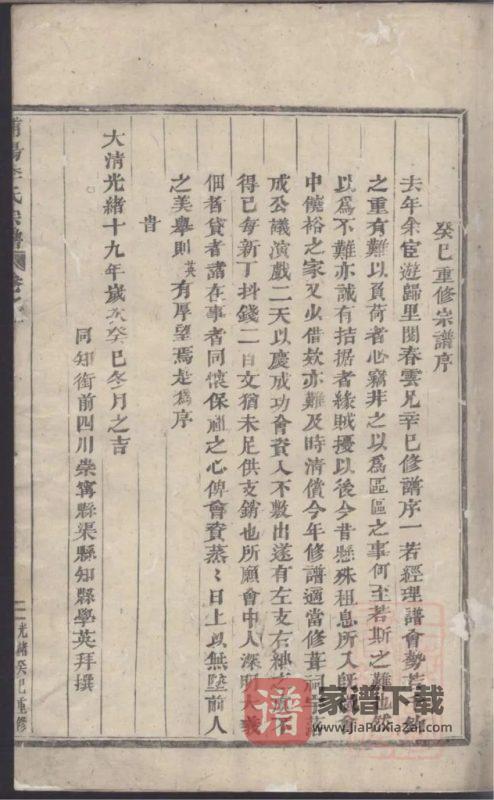 癸巳重修宗譜序
去年余宦遊歸里閱春雲兄辛巳修譜序一若經理譜會勢若
之重有難以負荷者心竊非之以爲區區之事何至若斯之難也然
以爲不難亦誠有拮据者緣賊擾以後今昔懸殊租息所入既
中饒裕之家又少借欸亦難及時清償今年修譜適當修葺祠宇落
成公議演戲二天以慶成功會資入不敷出遂有左支右絀之
得已每新丁抖錢二百文猶未足供支銷也所願會中人深明大義
佃者貸者諸在事者同懷保祖之心俾會資蒸〻日上以無墜前人
之美舉則英有厚望焉是爲序
旹
大清光緒十九年歲次癸巳冬月之吉
同知銜前四川崇寧縣渠縣知縣學英拜撰
氏宗譜
光緒癸巳重修
譜
家谱下载
www.jiaPuXiaZai.com